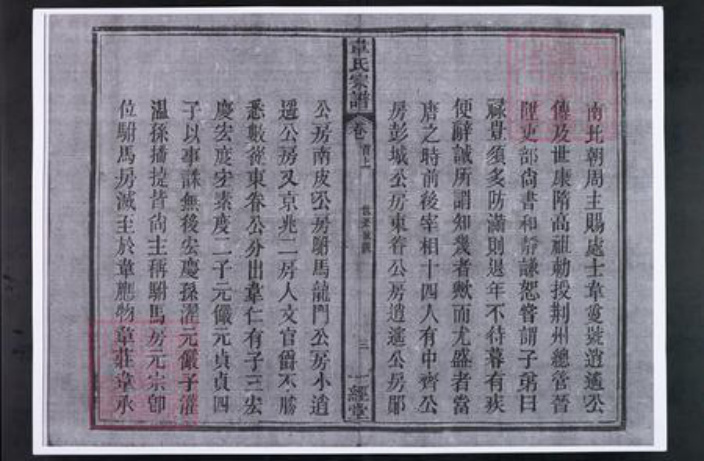 南北朝周主賜處士韋敻號逍遙公
傳及世康隋高祖勅授荆州總管晉
陞吏部尚書和靜謙恕嘗謂子弟曰
祿豈須多防滿則退年不待暮有疾
便辭誠所謂知幾者歟而尤盛者當
唐之時前後宰相十四人有中齊公
房彭城公房東眷公房逍遙公房鄖
韋氏家譜
卷
首上
三
一經堂
公房南皮公房駙馬龍門公房小逍
遥公房又京兆二房人文官爵不勝
悉數從東眷公分出韋仁有子三宏
慶宏度宏素度二子元儼元貞貞四
子以事誅無後宏慶孫濯元儼子灌
溫孫播㨗皆尚主稱駙馬房元宗卽
位駙馬房滅至於韋應物韋莊韋承